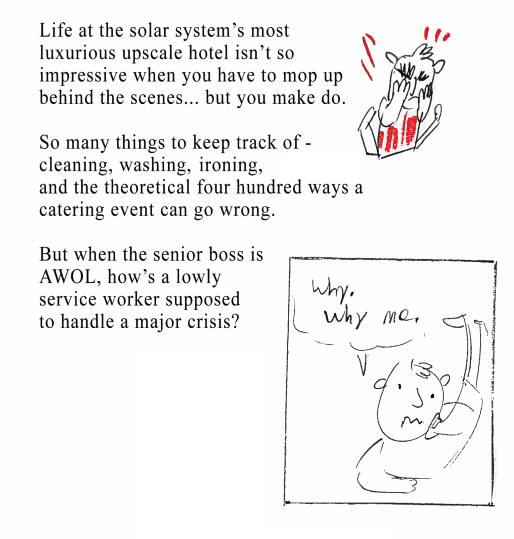 Life at the solar system's most
luxurious upscale hotel isn't so
impressive when you have to mop up
behind the scenes... but you make do.
So many things to keep track of -
cleaning, washing, ironing,
and the theoretical four hundred ways a
catering event can go wrong.
But when the senior boss is
AWOL, how's a lowly
service worker supposed
to handle a major crisis?
Why.
Why me.